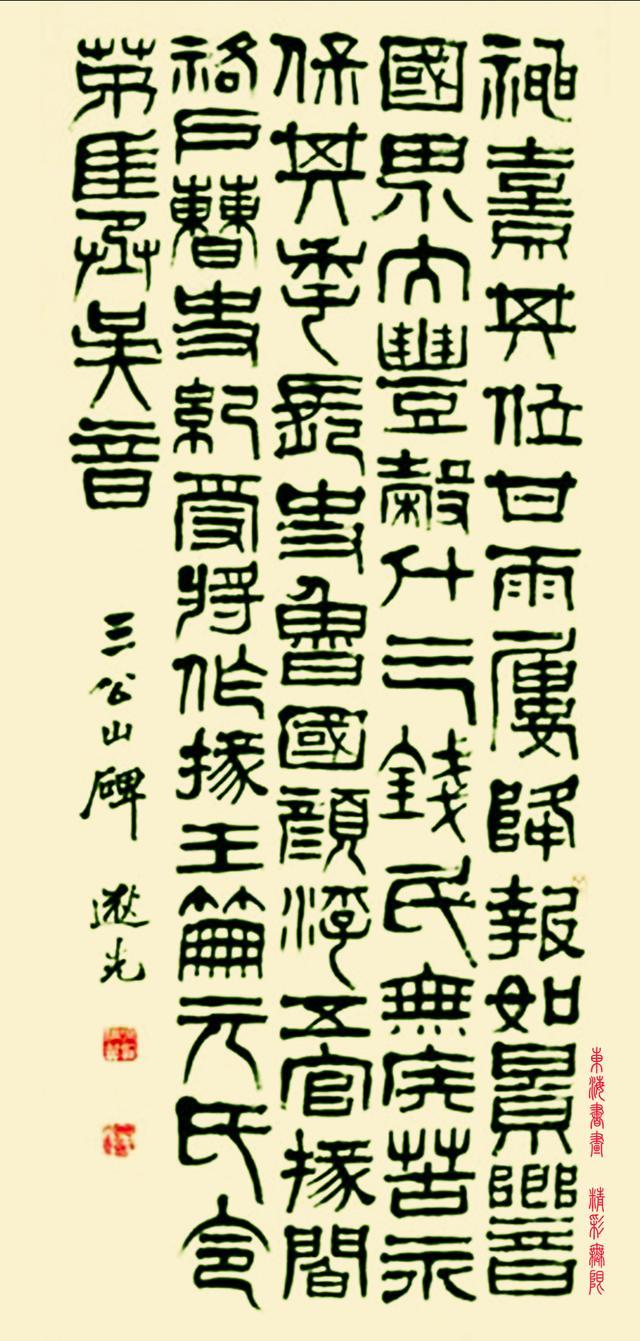 神熹其位甘雨屢降報如景響
國界大豐穀斗三錢民無疾苦永
保其年長史魯國顏浮五官掾閻
祐戶曹史紀受將作掾王笧元氏令
茅匡丞吳音
三公山碑
東海書畫 精彩無限